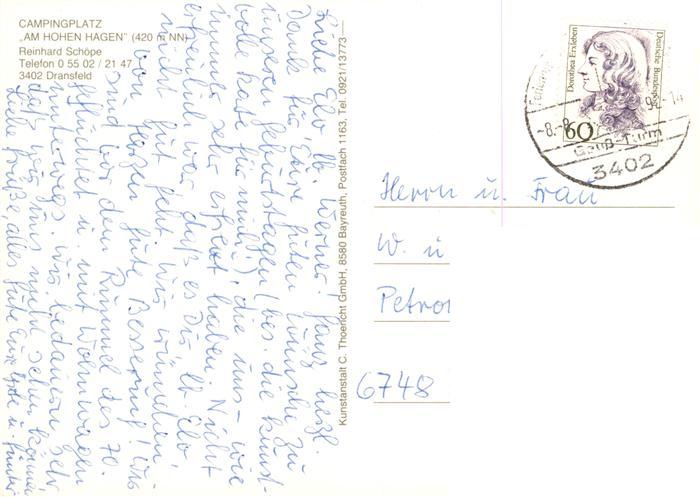 CAMPINGPLATZ
„AM HOHEN HAGEN" (420 m NN)
Reinhard Schöpe
Telefon 0 55 02 / 21 47
3402 Dransfeld
Liebe Elo, lb. Werner! Ganz herzl.
Dank für Eure guten Wünsche zu
unseren Geburtstagen (bes. die kunst-
volle Karte für mich!), die uns - wie
immer sehr erfreut haben. Nicht
erfreulich war, daß es Dir, lb. Elo,
nicht gut geht. Wir wünschen
von Herzen gute Besserung! Wir
sind vor dem Rummel des 70.
geflüchtet u. mit Wohnwagen
unterwegs. Wir bedauern sehr
daß wir uns nicht sehen können
Liebe Grüße, alles Gute Eure u. Günter
Kunstanstalt C. Thoericht GmbH, 8580 Bayreuth, Postfach 1163, Tel. 0921/13773
Dorothea Erxleben
Deutsche Bundespost
60
-8.-8.
-14
Gauß-Turm
3402
Herrn u. Frau
W. u
Petro
6748